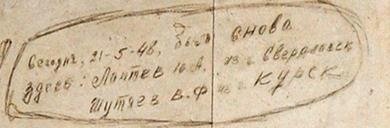 Сегодня, 21-5-48, был снова
здесь: Лаптев Ю.А. из г. Свердловск
Шутяев В.Ф из г. Курск